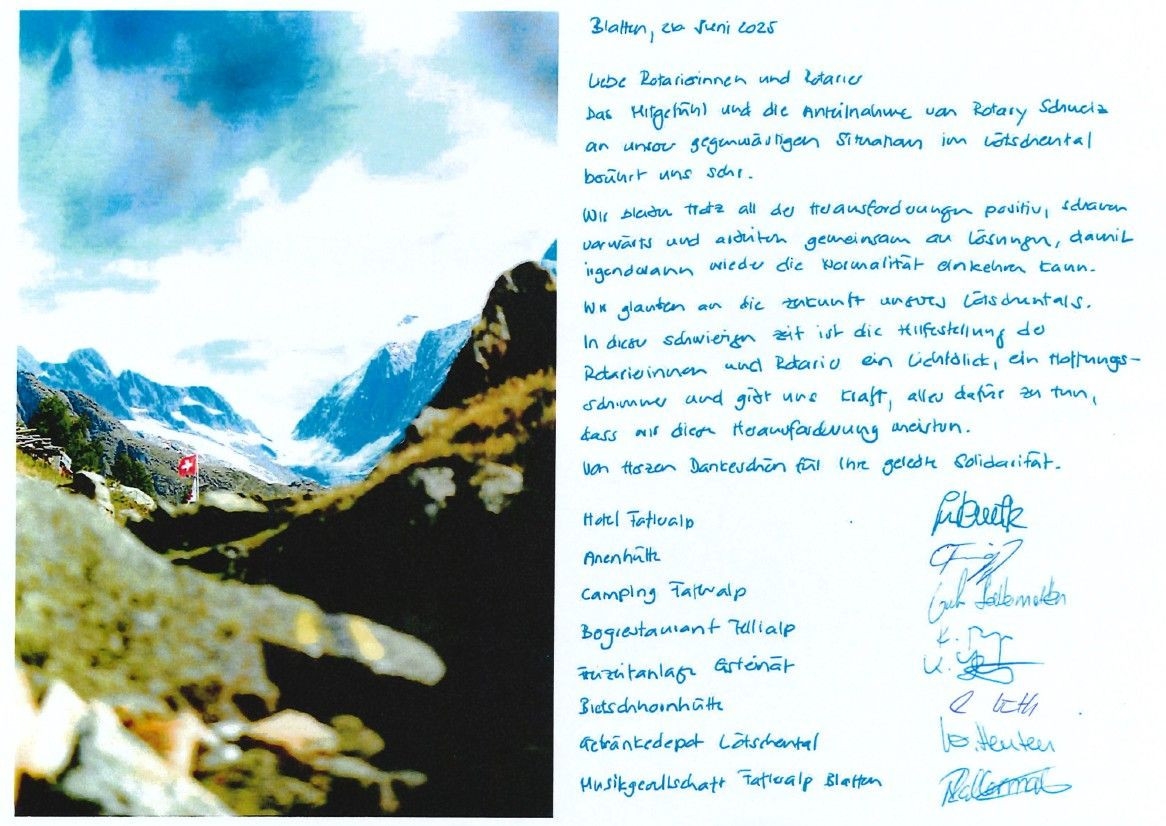 Blatten, 26. Juni 2025
Liebe Rotarierinnen und Rotarier
Das Mitgefühl und die Anteilnahme von Rotary Schweiz
an unserer gegenwärtigen Situation im Lötschental
berührt uns sehr.
Wir bleiben trotz all der Herausforderungen positiv, schauen
vorwärts und arbeiten gemeinsam an Lösungen, damit
irgendwann wieder die Normalität einkehren kann.
Wir glauben an die Zukunft unseres Lötschentals.
In dieser schwierigen Zeit ist die Hilfestellung der
Rotarierinnen und Rotarier ein Lichtblick, ein Hoffnungs-
schimmer und gibt uns Kraft, alles dafür zu tun,
dass wir diese Herausforderung meistern.
Von Herzen Dankeschön für Ihre gelebte Solidarität.
Hotel Fafleralp
Anenhütte
Camping Fafleralp
Bergrestaurant Fellialp
Freizeitanlage
Bietschhornhütte
Getränkedepot Lötschental
Musikgesellschaft Fafleralp Blatten